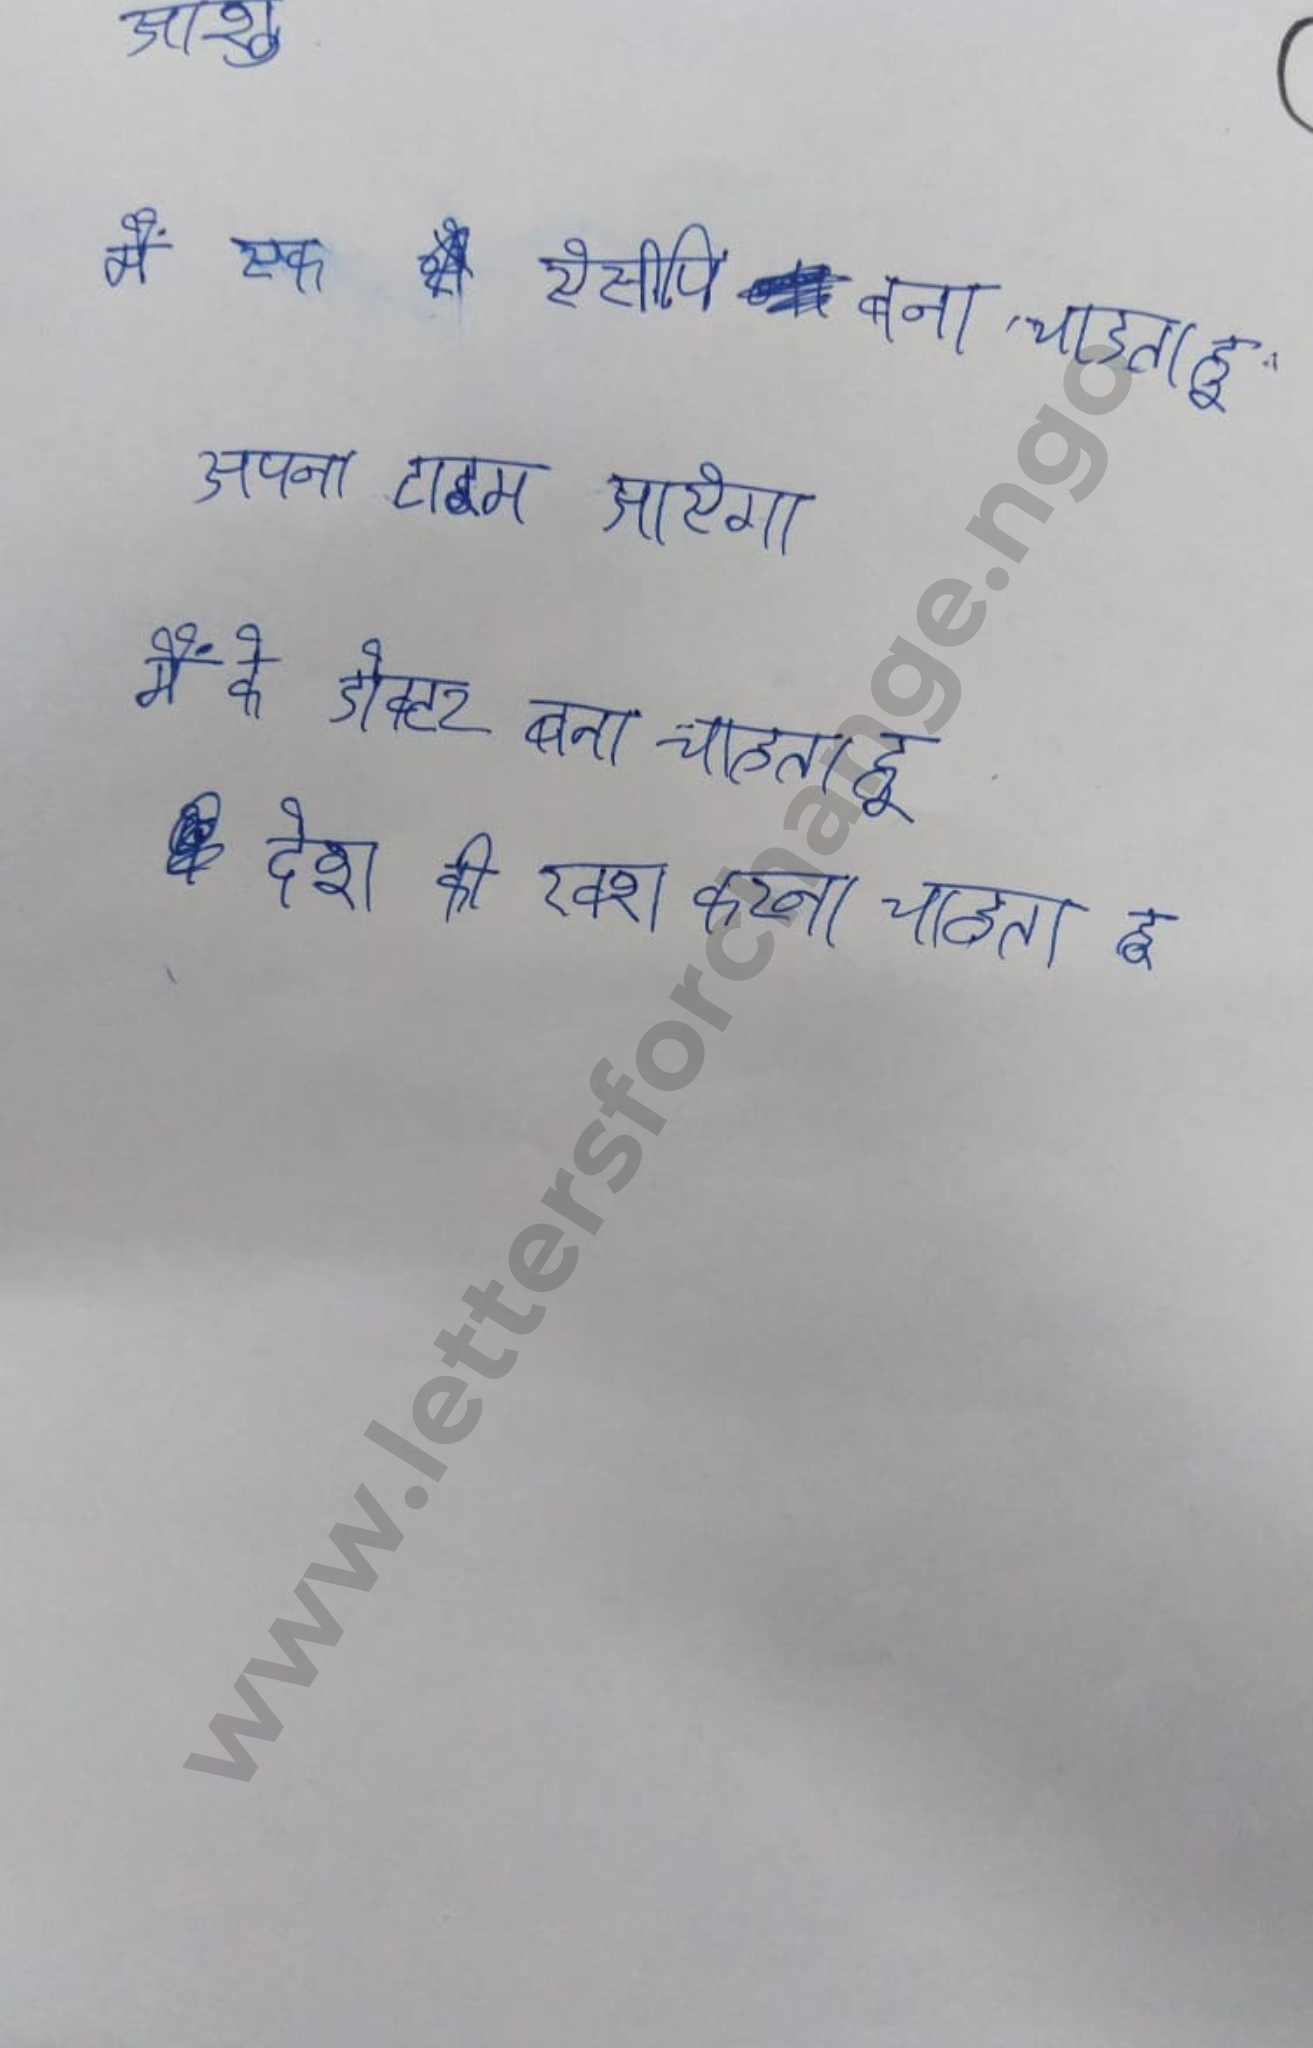 आशु
मैं एक ऐसीपि बना चाहता हू
अपना टाइम आऐगा
मैं के डोक्टर बना चाहता हू
देश की रक्श करना चाहता हू
www.lettersforchange.ngo